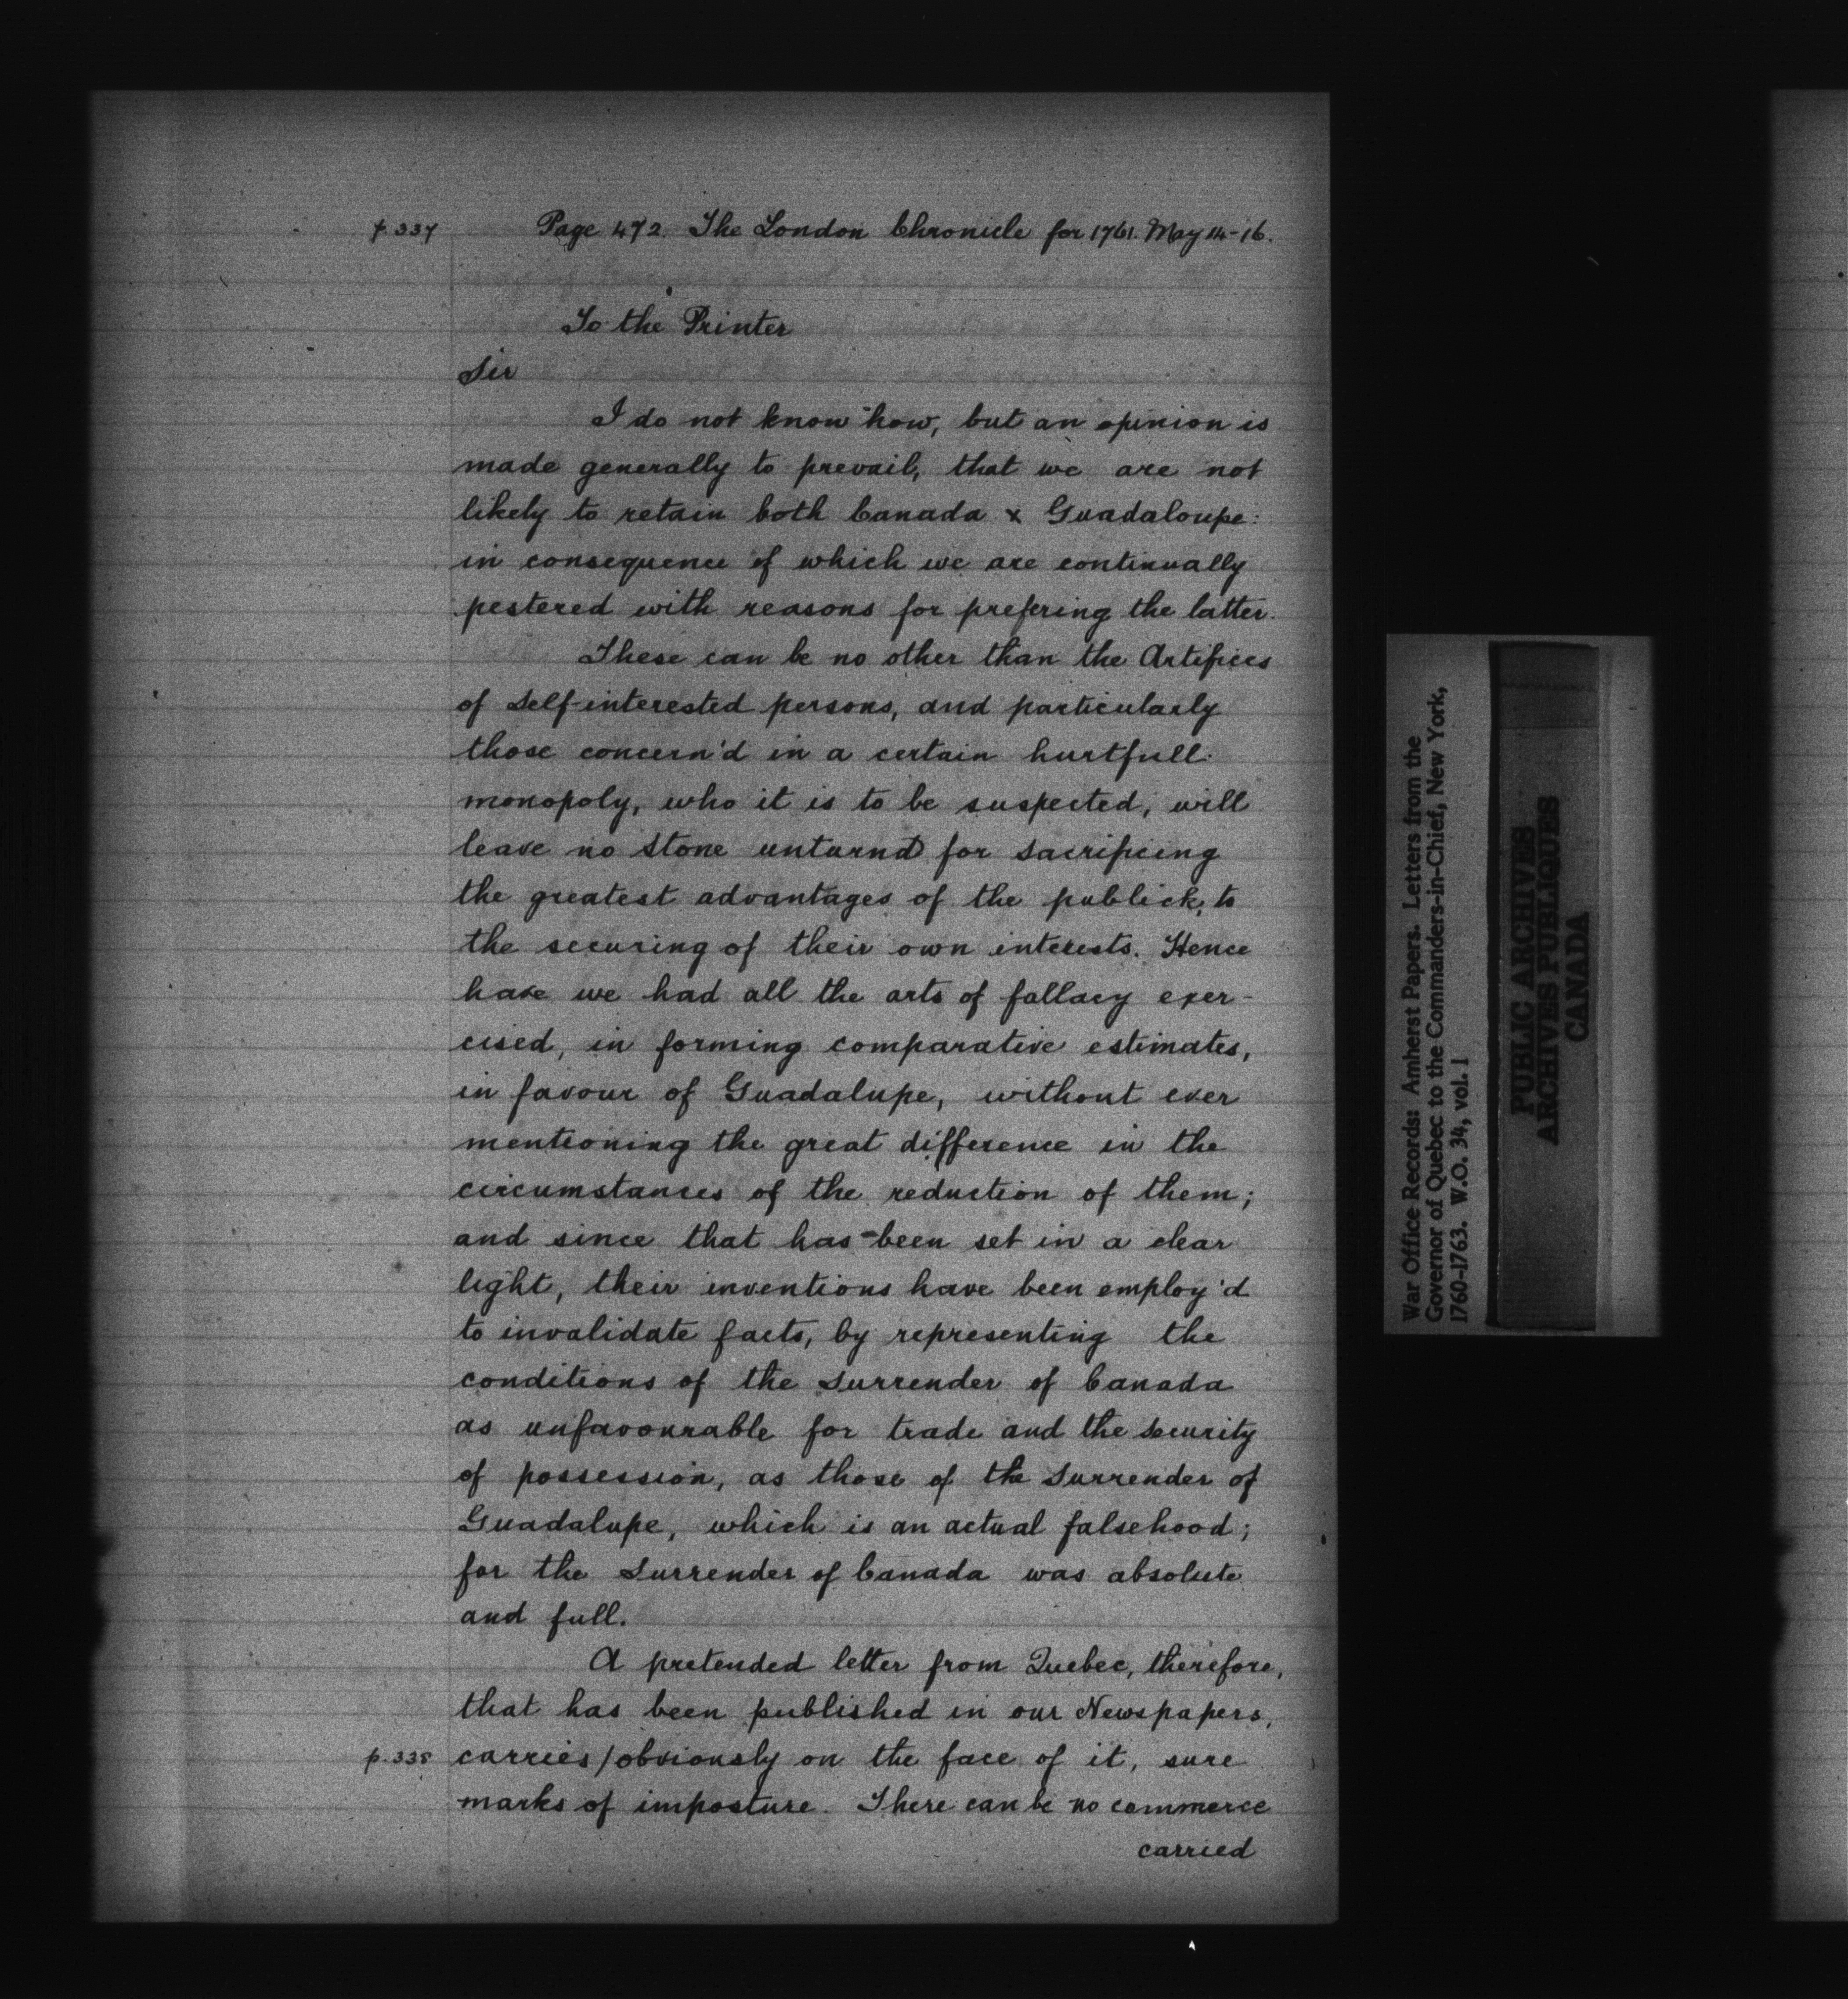 p. 337 Page 472. The London Chronicle for 1761. May 14-16.
To the Printer
Sir
I do not know how, but an opinion is
made generally to prevail, that we are not
likely to retain both Canada & Guadaloupe:
in consequence of which we are continually
pestered with reasons for prefering the latter.
These can be no other than the Artifices
of Self-interested persons, and particularly
those concern'd in a certain hurtfull
monopoly, who it is to be suspected, will
leave no stone unturnd for sacrificing
the greatest advantages of the publick, to
the securing of their own interests. Hence
have we had all the arts of fallacy exer-
cised, in forming comparative estimates,
in favour of Guadalupe, without ever
mentioning the great difference in the
circumstances of the reduction of them;
and since that has been set in a clear
light, their inventions have been employ'd
to invalidate facts, by representing the
conditions of the Surrender of Canada
as unfavourable for trade and the security
of possession, as those of the Surrender of
Guadalupe, which is an actual falsehood;
for the Surrender of Canada was absolute
and full.
A pretended letter from Quebec, therefore,
that has been published in our Newspapers,
p. 338 carries/obviously on the face of it, sure
marks of imposture. There can be no commerce
carried
War Office Records: Amherst Papers. Letters from the
Governor of Quebec to the Commanders-in-Chief, New York,
1760-1763. W.O. 34, vol. 1
PUBLIC ARCHIVES
ARCHIVES PUBLIQUES
CANADA